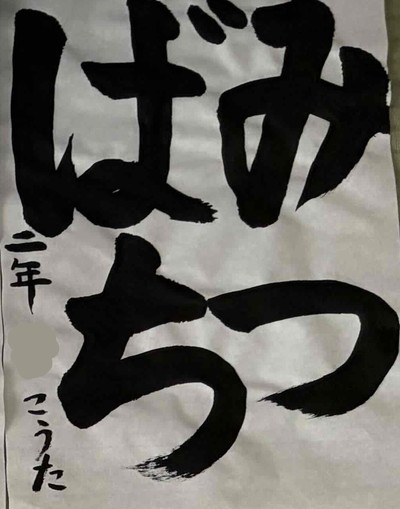 みつ
ばち
二年
こうた